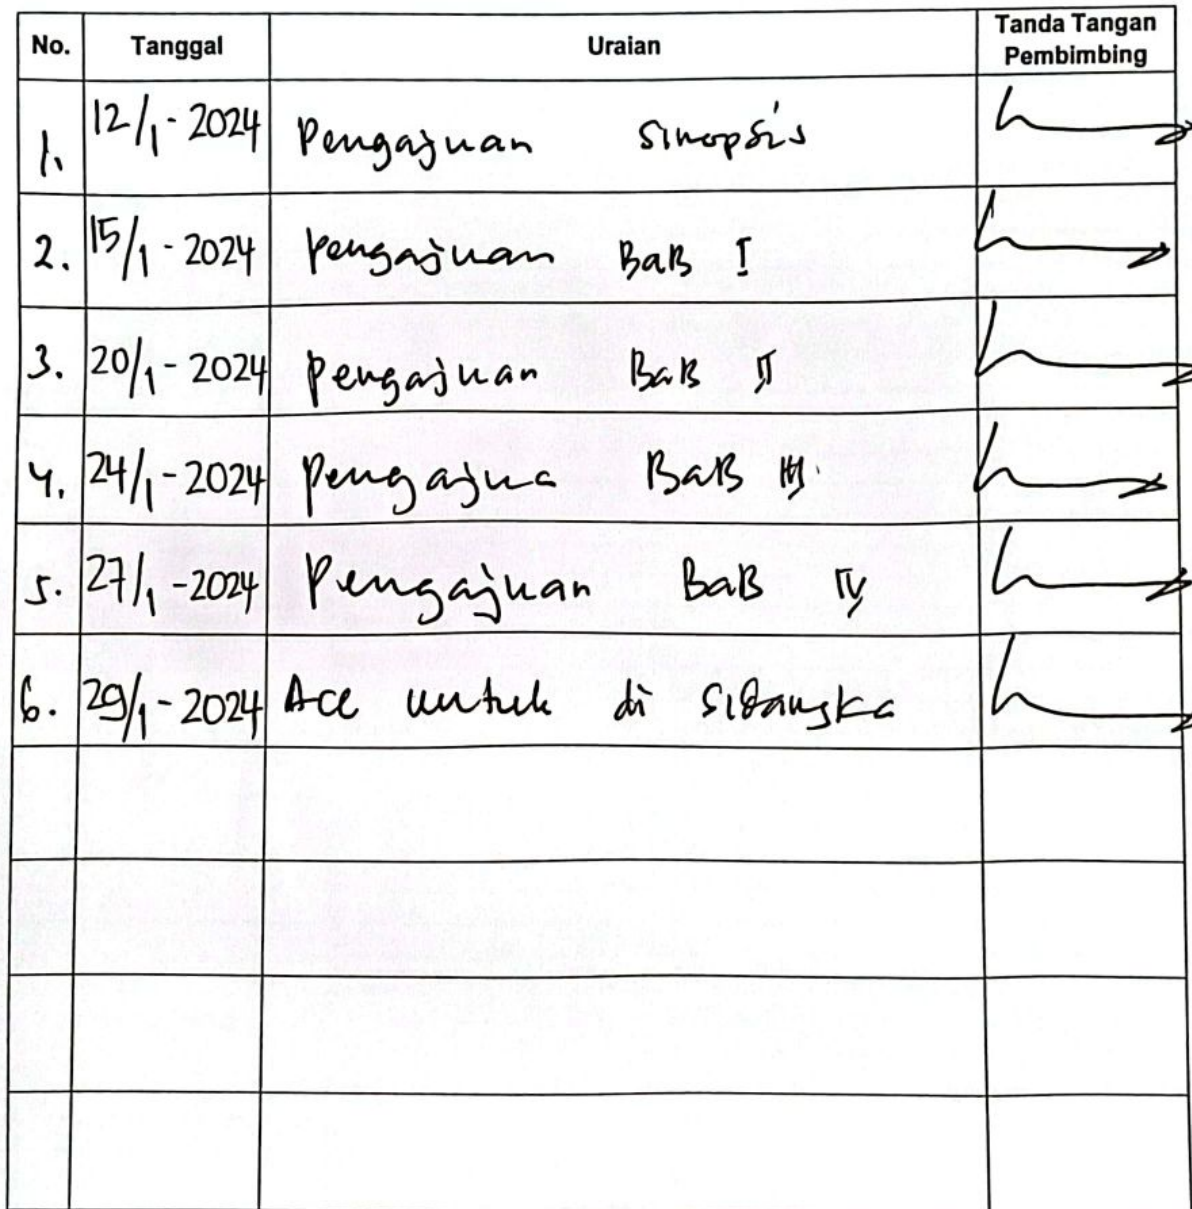 No. Tanggal Uraian Tanda Tangan Pembimbing
1. 12/1-2024 Pengajuan Sinopsis
2. 15/1-2024 Pengajuan BaB I
3. 20/1-2024 Pengajuan BaB II
4. 24/1-2024 Pengajua BaB III
5. 27/1-2024 Pengajuan BaB IV
6. 29/1-2024 Acc untuk di Sidangka